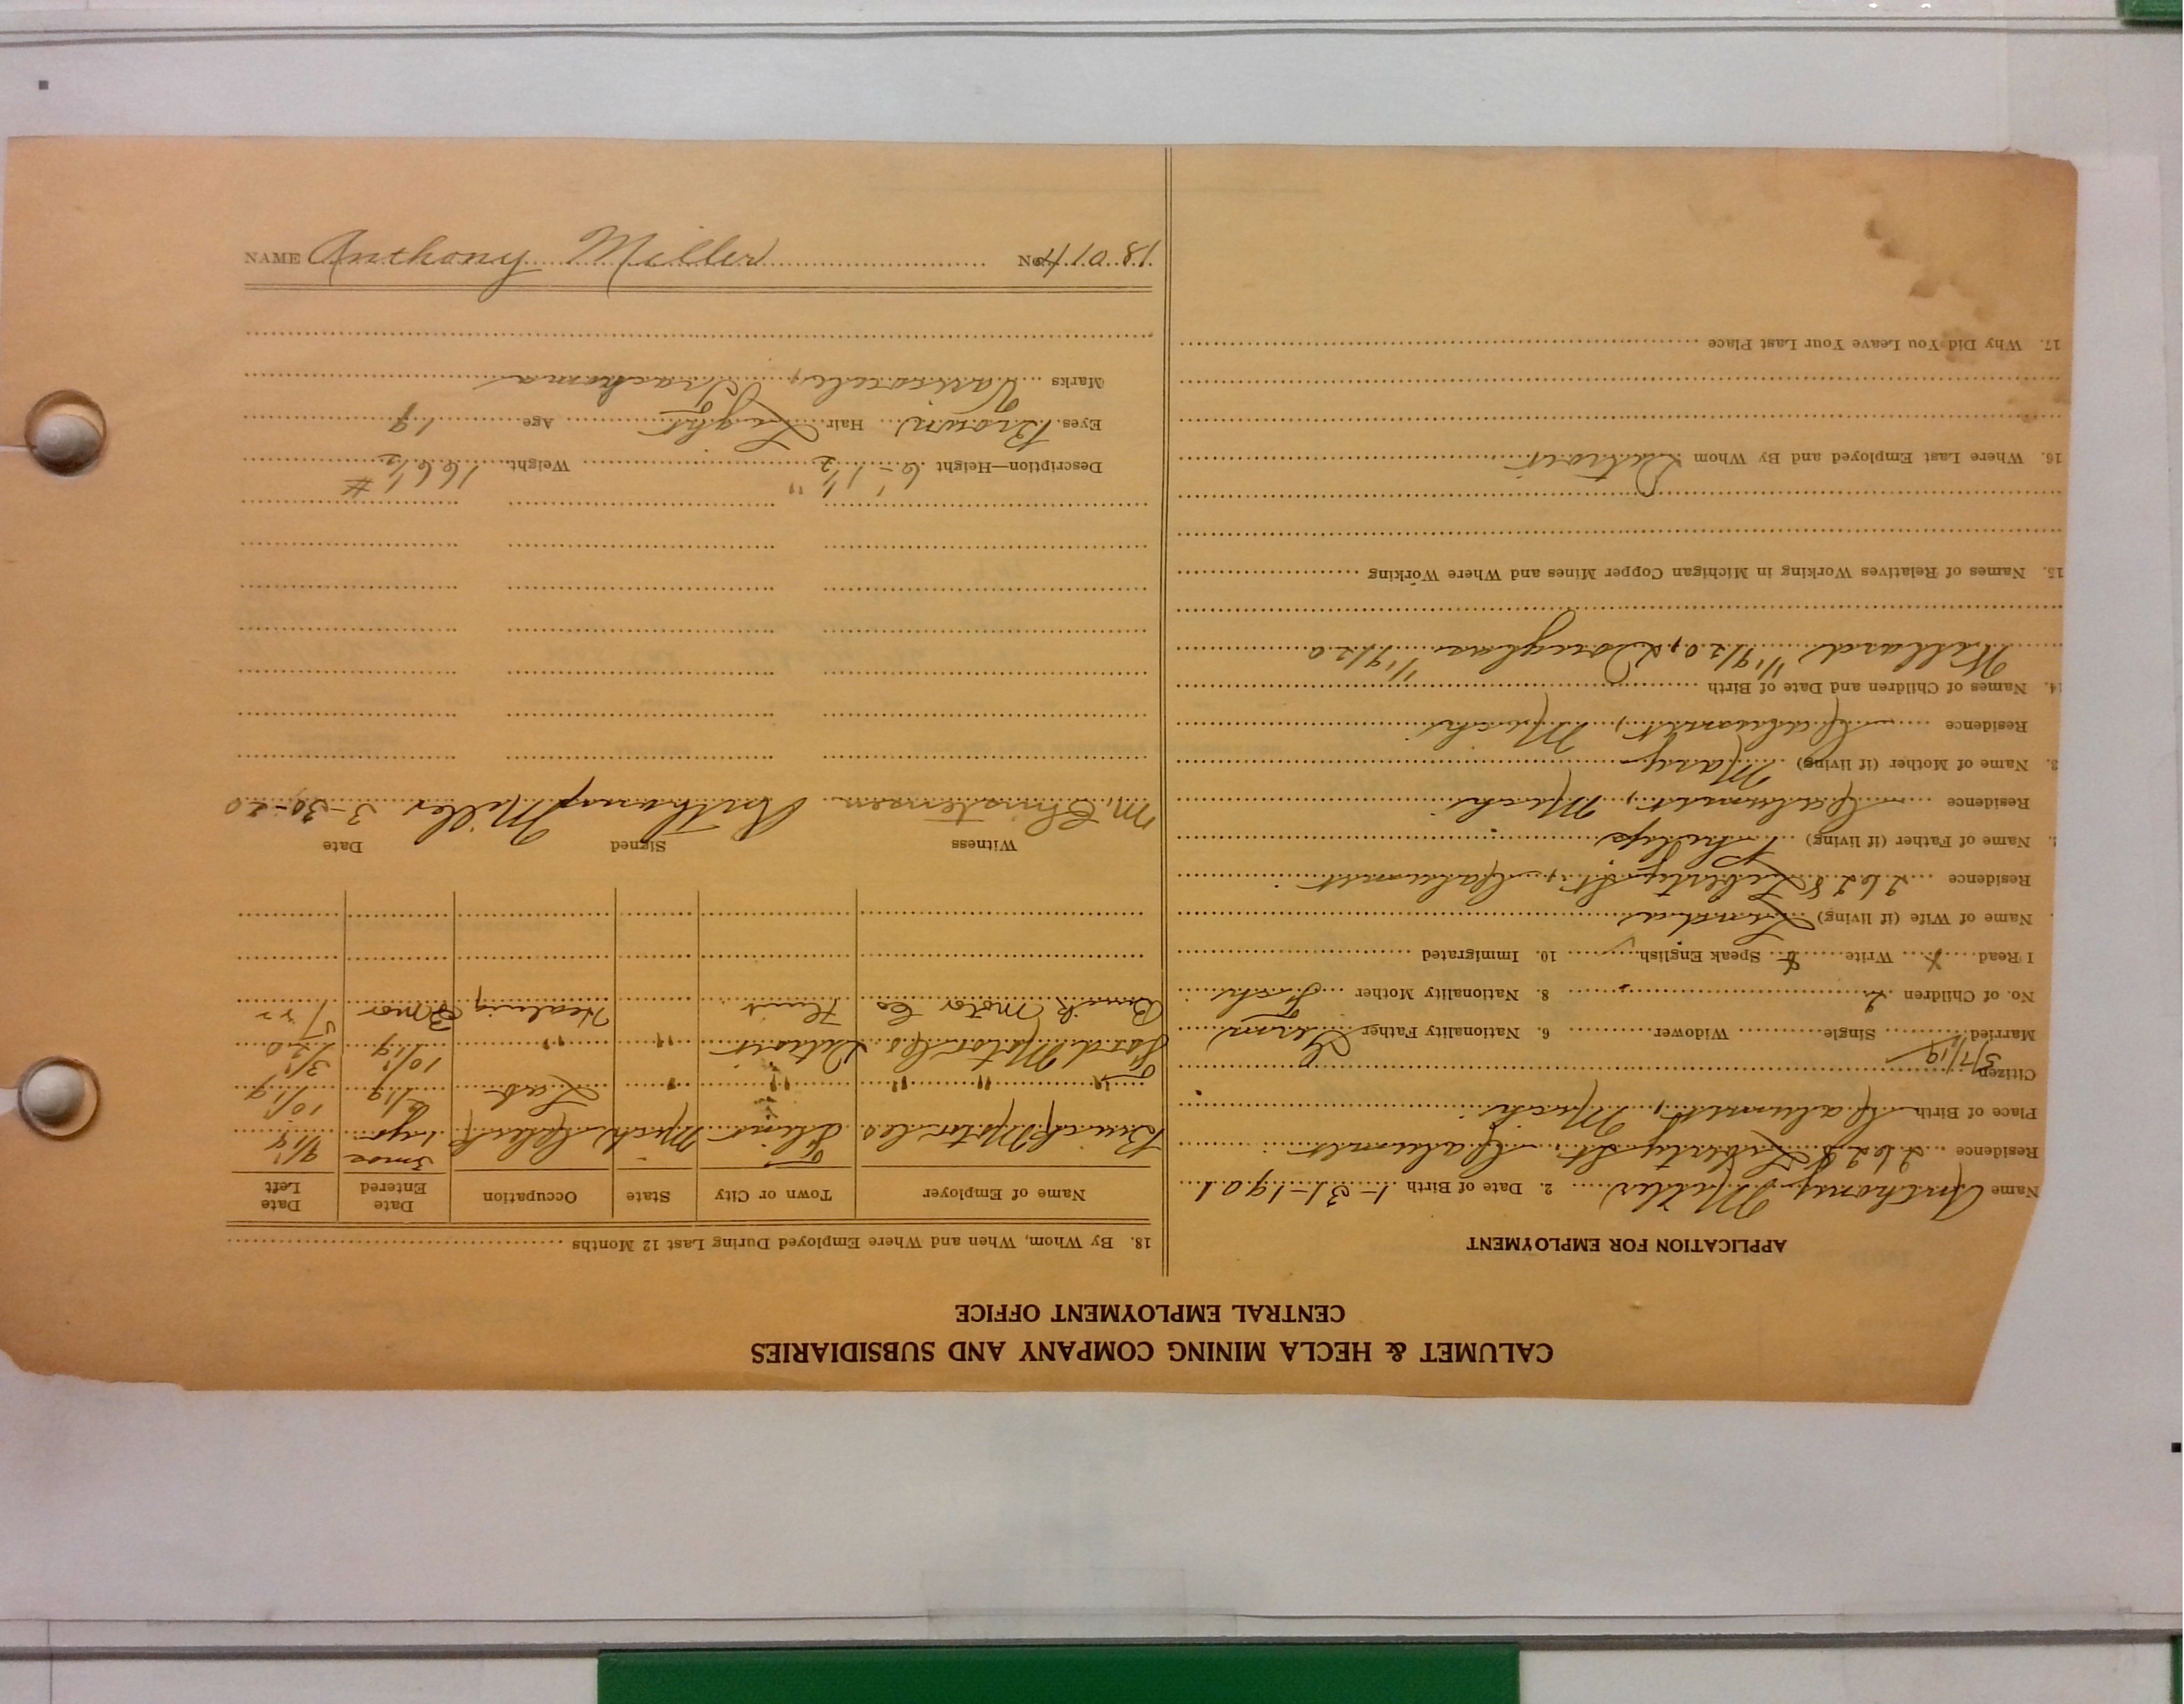 CALUMET & HECLA MINING COMPANY AND SUBSIDIARIES
CENTRAL EMPLOYMENT OFFICE
APPLICATION FOR EMPLOYMENT
Name Anthony Miller 2. Date of Birth 1-31-1901
Residence 2628 Liberty St., Calumet
Place of Birth Calumet, Mich.
Citizen
Married 3/7/19 Single Widower 6. Nationality Father Germ
No. of Children 2 8. Nationality Mother
I Read x Write x Speak English 10. Immigrated
Name of Wife (if living)
Residence 2628 Liberty St., Calumet
Name of Father (if living) Philip
Residence Calumet, Mich.
3. Name of Mother (if living) Mary
Residence Calumet, Mich.
14. Names of Children and Date of Birth
Willard 1/19/20, Douglas 1/19/20
15. Names of Relatives Working in Michigan Copper Mines and Where Working
16. Where Last Employed and By Whom Detroit
17. Why Did You Leave Your Last Place
18. By Whom, When and Where Employed During Last 12 Months
Name of Employer Town or City State Occupation Date Entered Date Left
Buick Motor Co Flint Mich 3 mos 1 yr
" " " " " Lab 10/19
Ford Motor Co. Detroit " " 10/19 3/20
Buick Motor Co Flint 3 mos
Witness Signed Date
M. Christensen Anthony Miller 3-30-20
Description—Height 6' 1 1/2" Weight 166 1/2 #
Eyes Brown Hair Light Age 19
Marks Varicocele, Trachoma
NAME Anthony Miller No.